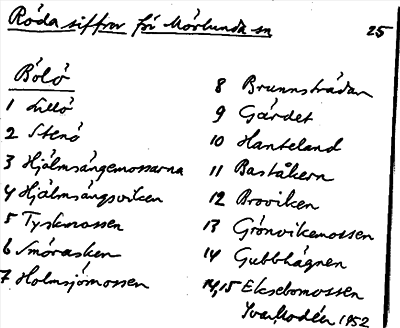 Röda siffror för Mörlunda sn 25
Bölö
1 Lillö
2 Stenö
3 Hjälmsängemossarna
4 Hjälmsängsviken
5 Tyskmossen
6 Smörasken
7 Holmsjömossen
8 Brunnsträdan
9 Gärdet
10 Hanteland
11 Baståkern
12 Broviken
13 Grönvikemossen
14 Gubbhägnen
14,15 Eksebomossen
Ivar Modén 1952